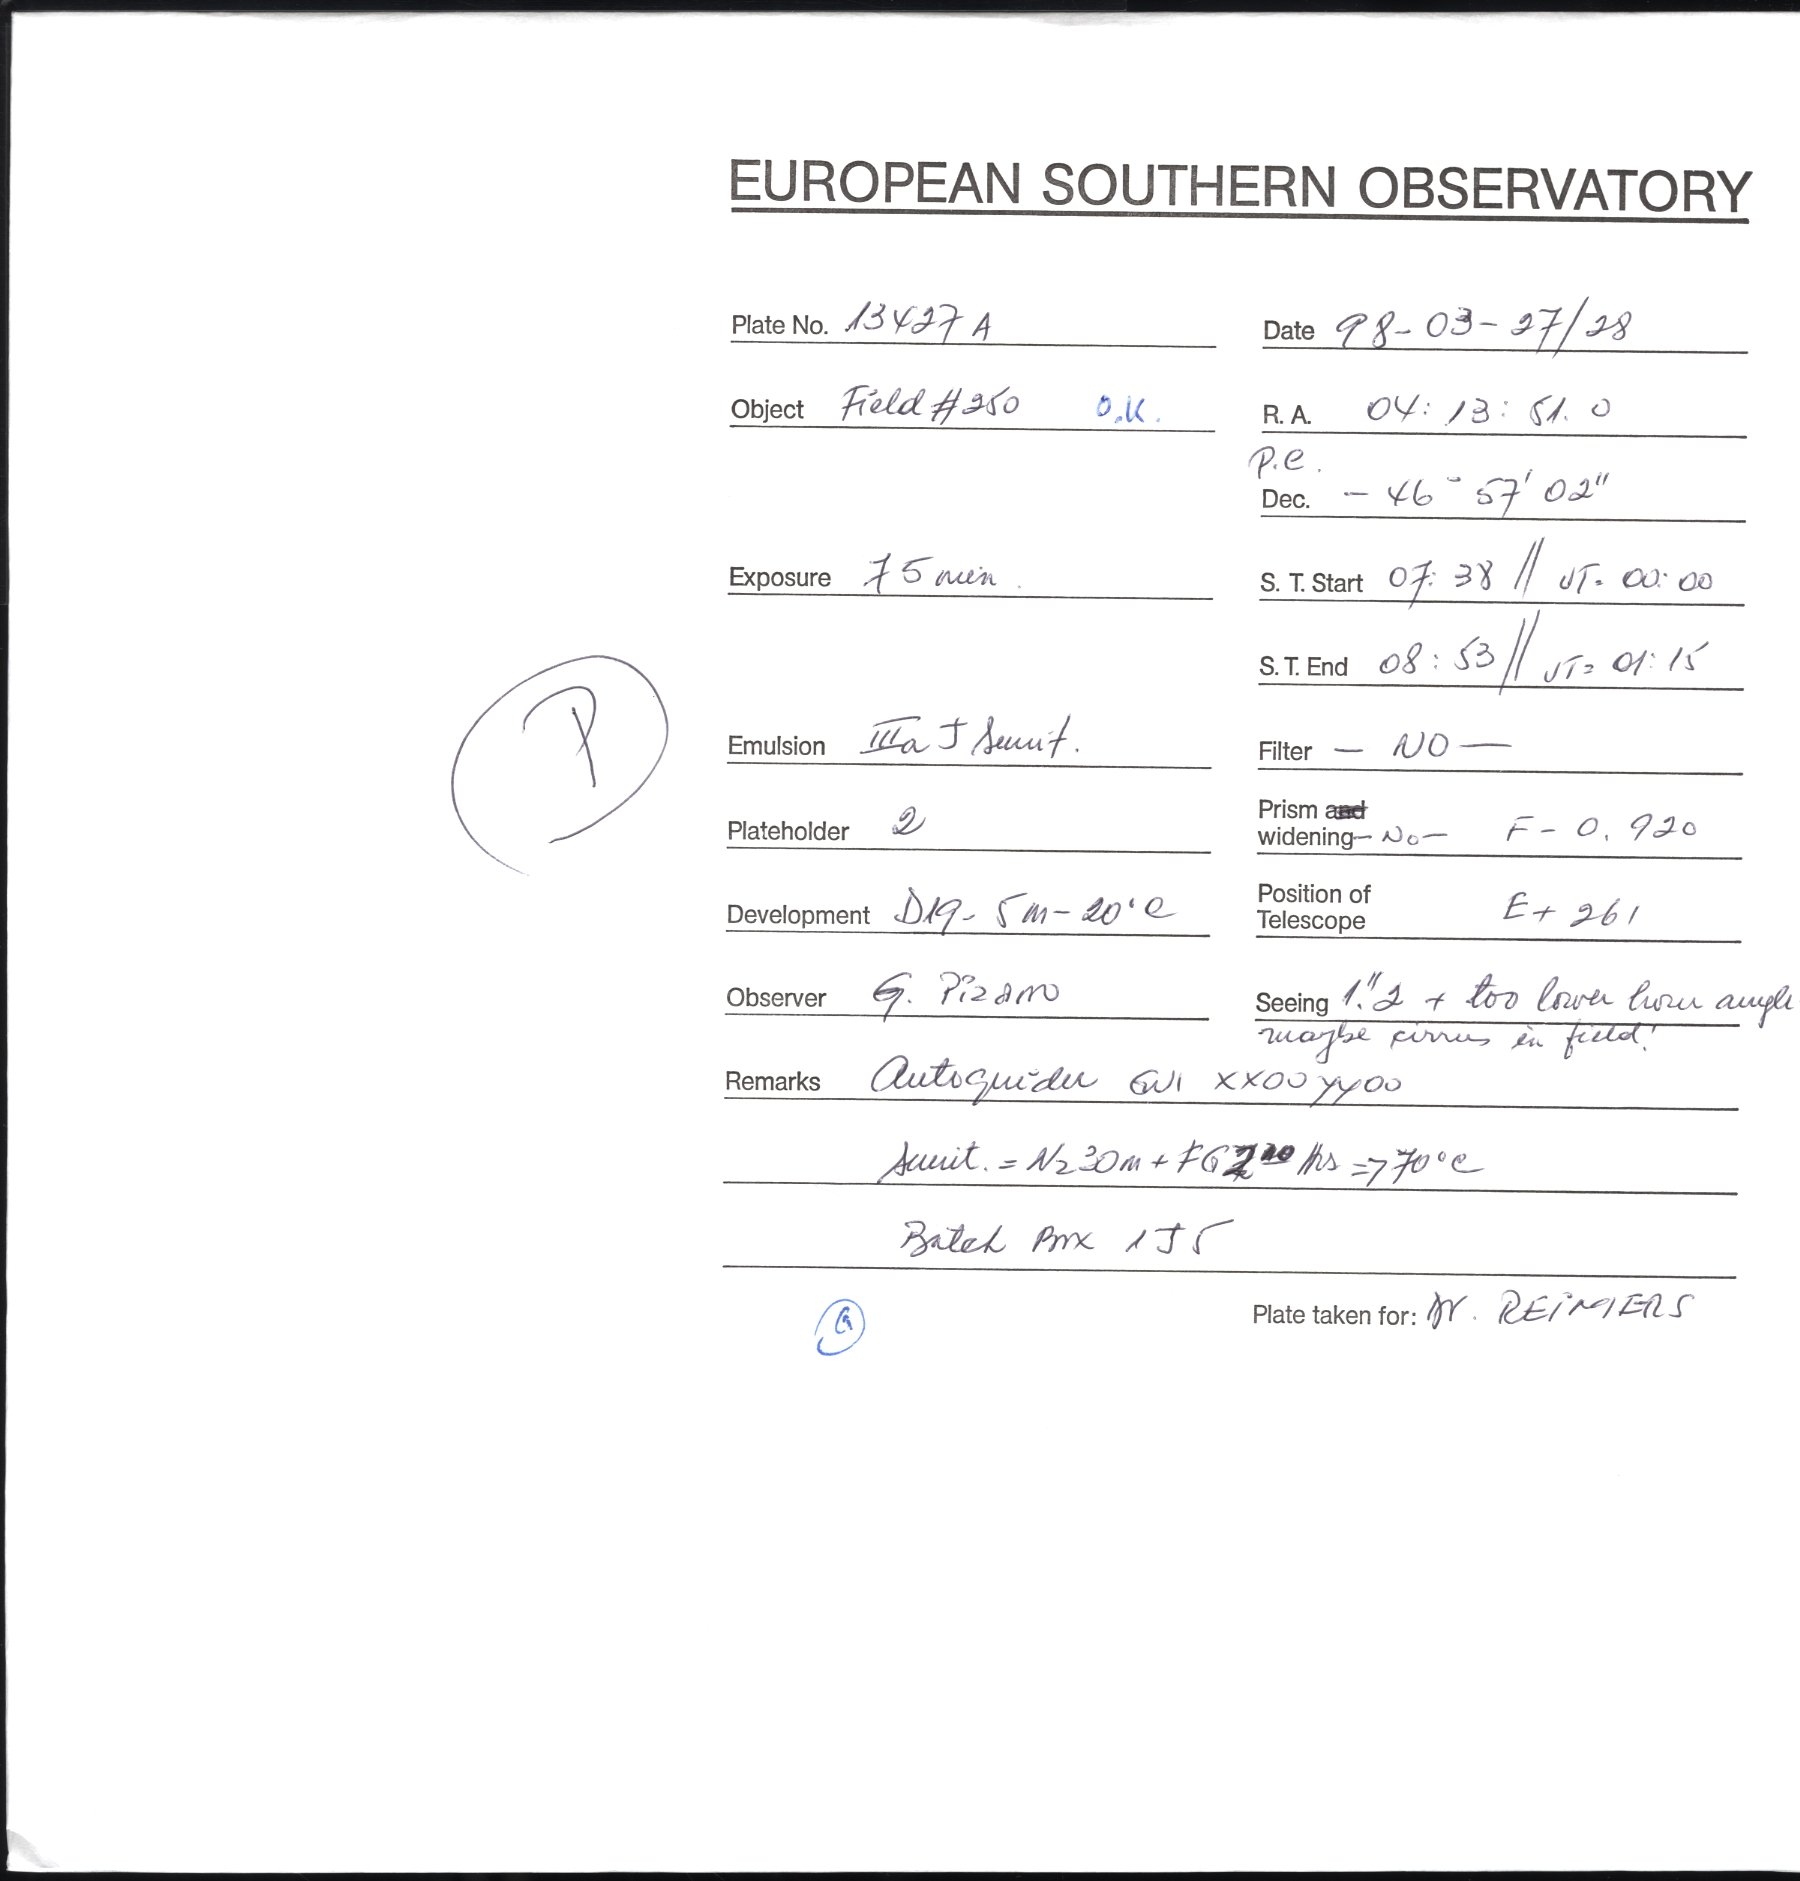 EUROPEAN SOUTHERN OBSERVATORY
Plate No. 13427 A
Date 98-03-27/28
Object Field #250 O.K.
R. A. 04: 13: 51. 0
p.e.
Dec. - 46° 57' 02"
Exposure 75 min.
S. T. Start 07: 38 // UT= 00:00
S. T. End 08: 53 // UT= 01:15
P
Emulsion IIIa J Sensit.
Filter - NO -
Plateholder 2
Prism and
widening - NO - F- 0. 920
Development D19- 5m- 20°C
Position of
Telescope E+ 261
Observer G. Pizarro
Seeing 1."2 + too lower hour angle
maybe cirrus in field!
Remarks Autoguider GW1 XX00 YY00
Sensit. = N2 30m + FG Hrs => 70°C
Batch Box 1J5
Plate taken for: Dr. REIMERS